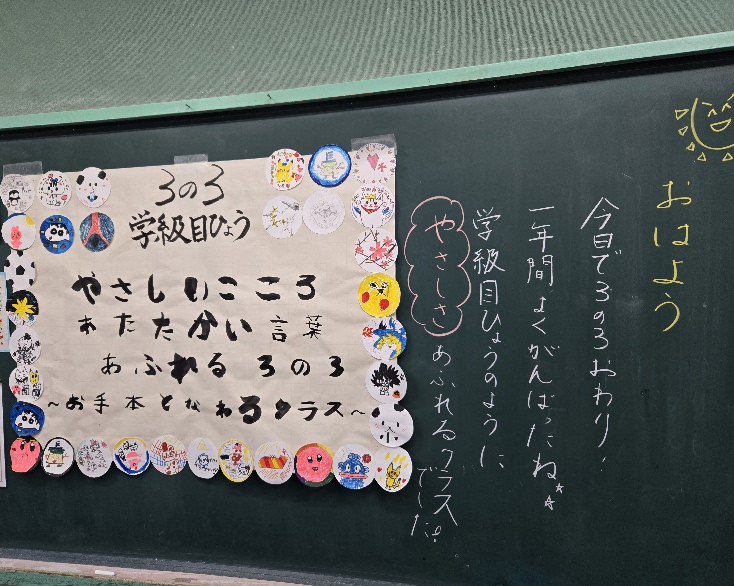 3の3
学級目ひょう
やさしいこころ
あたたかい言葉
あふれる3の3
～お手本となれるクラス～
おはよう
今日で3の3おわり!
一年間よくがんばったね
学級目ひょうのように
やさしさあふれるクラス
でした!